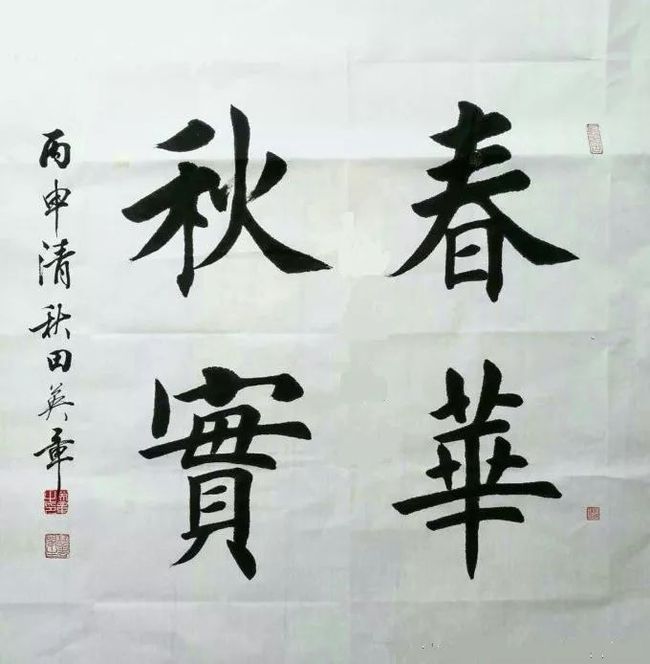 春華
秋實
丙申清秋田英章